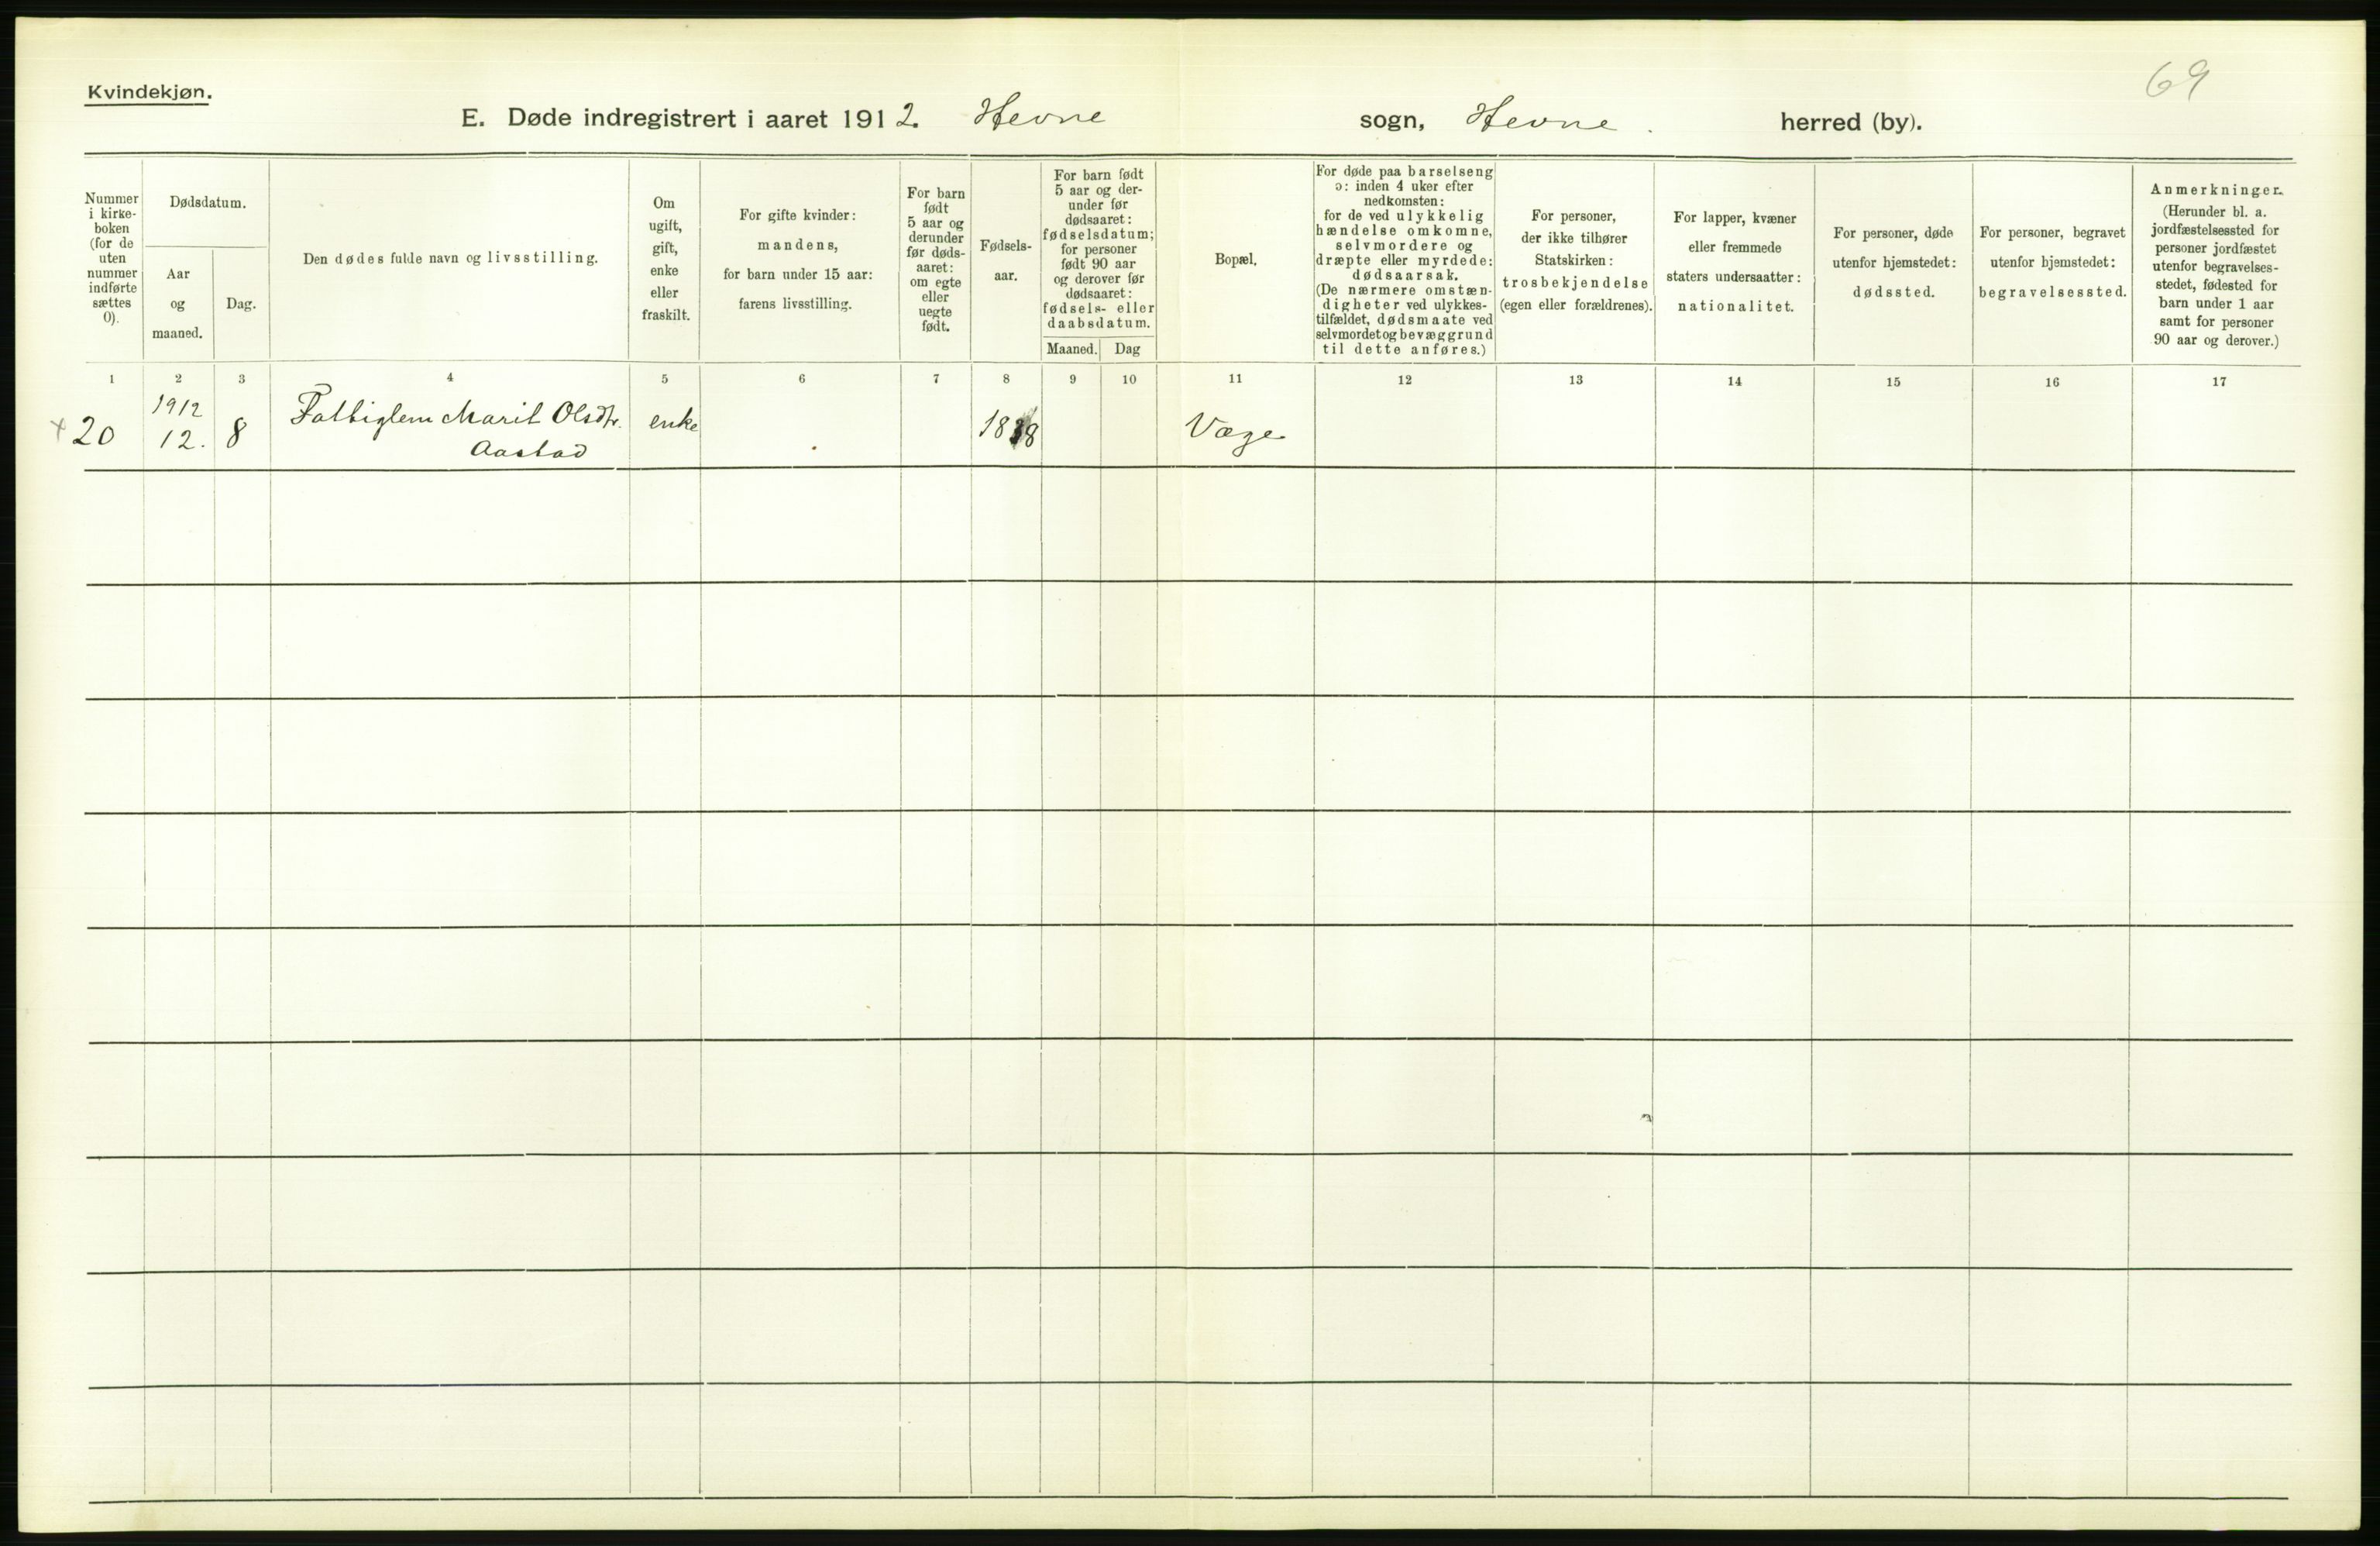 69
Kvindekjøn.
E. Døde indregistrert i aaret 1912. Hevne sogn, Hevne. herred (by).
Nummer
i kirke-
boken
(for de
uten
nummer
indførte
sættes
0).
Dødsdatum.
Aar
og
maaned.
Dag.
Den dødes fulde navn og livsstilling.
Om
ugift,
gift,
enke
eller
fraskilt.
For gifte kvinder:
mandens,
for barn under 15 aar:
farens livsstilling.
For barn
født
5 aar og
derunder
før døds-
aaret:
om egte
eller
uegte
født.
Fødsels-
aar.
For barn født
5 aar og der-
under før
dødsaaret:
fødselsdatum;
for personer
født 90 aar
og derover før
dødsaaret:
fødsels- eller
daabsdatum.
Maaned. Dag
Bopæl.
For døde paa barselseng
ɔ: inden 4 uker efter
nedkomsten:
for de ved ulykkelig
hændelse omkomne,
selvmordere og
dræpte eller myrdede:
dødsaarsak.
(De nærmere omstæn-
digheter ved ulykkes-
tilfældet, dødsmaate ved
selvmordet og bevæggrund
til dette anføres.)
For personer,
der ikke tilhører
Statskirken:
trosbekjendelse
(egen eller forældrenes).
For lapper, kvæner
eller fremmede
staters undersaatter:
nationalitet.
For personer, døde
utenfor hjemstedet:
dødssted.
For personer, begravet
utenfor hjemstedet:
begravelsessted.
Anmerkninger.
(Herunder bl. a.
jordfæstelsessted for
personer jordfæstet
utenfor begravelses-
stedet, fødested for
barn under 1 aar
samt for personer
90 aar og derover.)
1 2 3 4 5 6 7 8 9 10 11 12 13 14 15 16 17
1912
+ 20 12. 8 Fattiglem Marit Olsdtr. enke Væge
Aastad